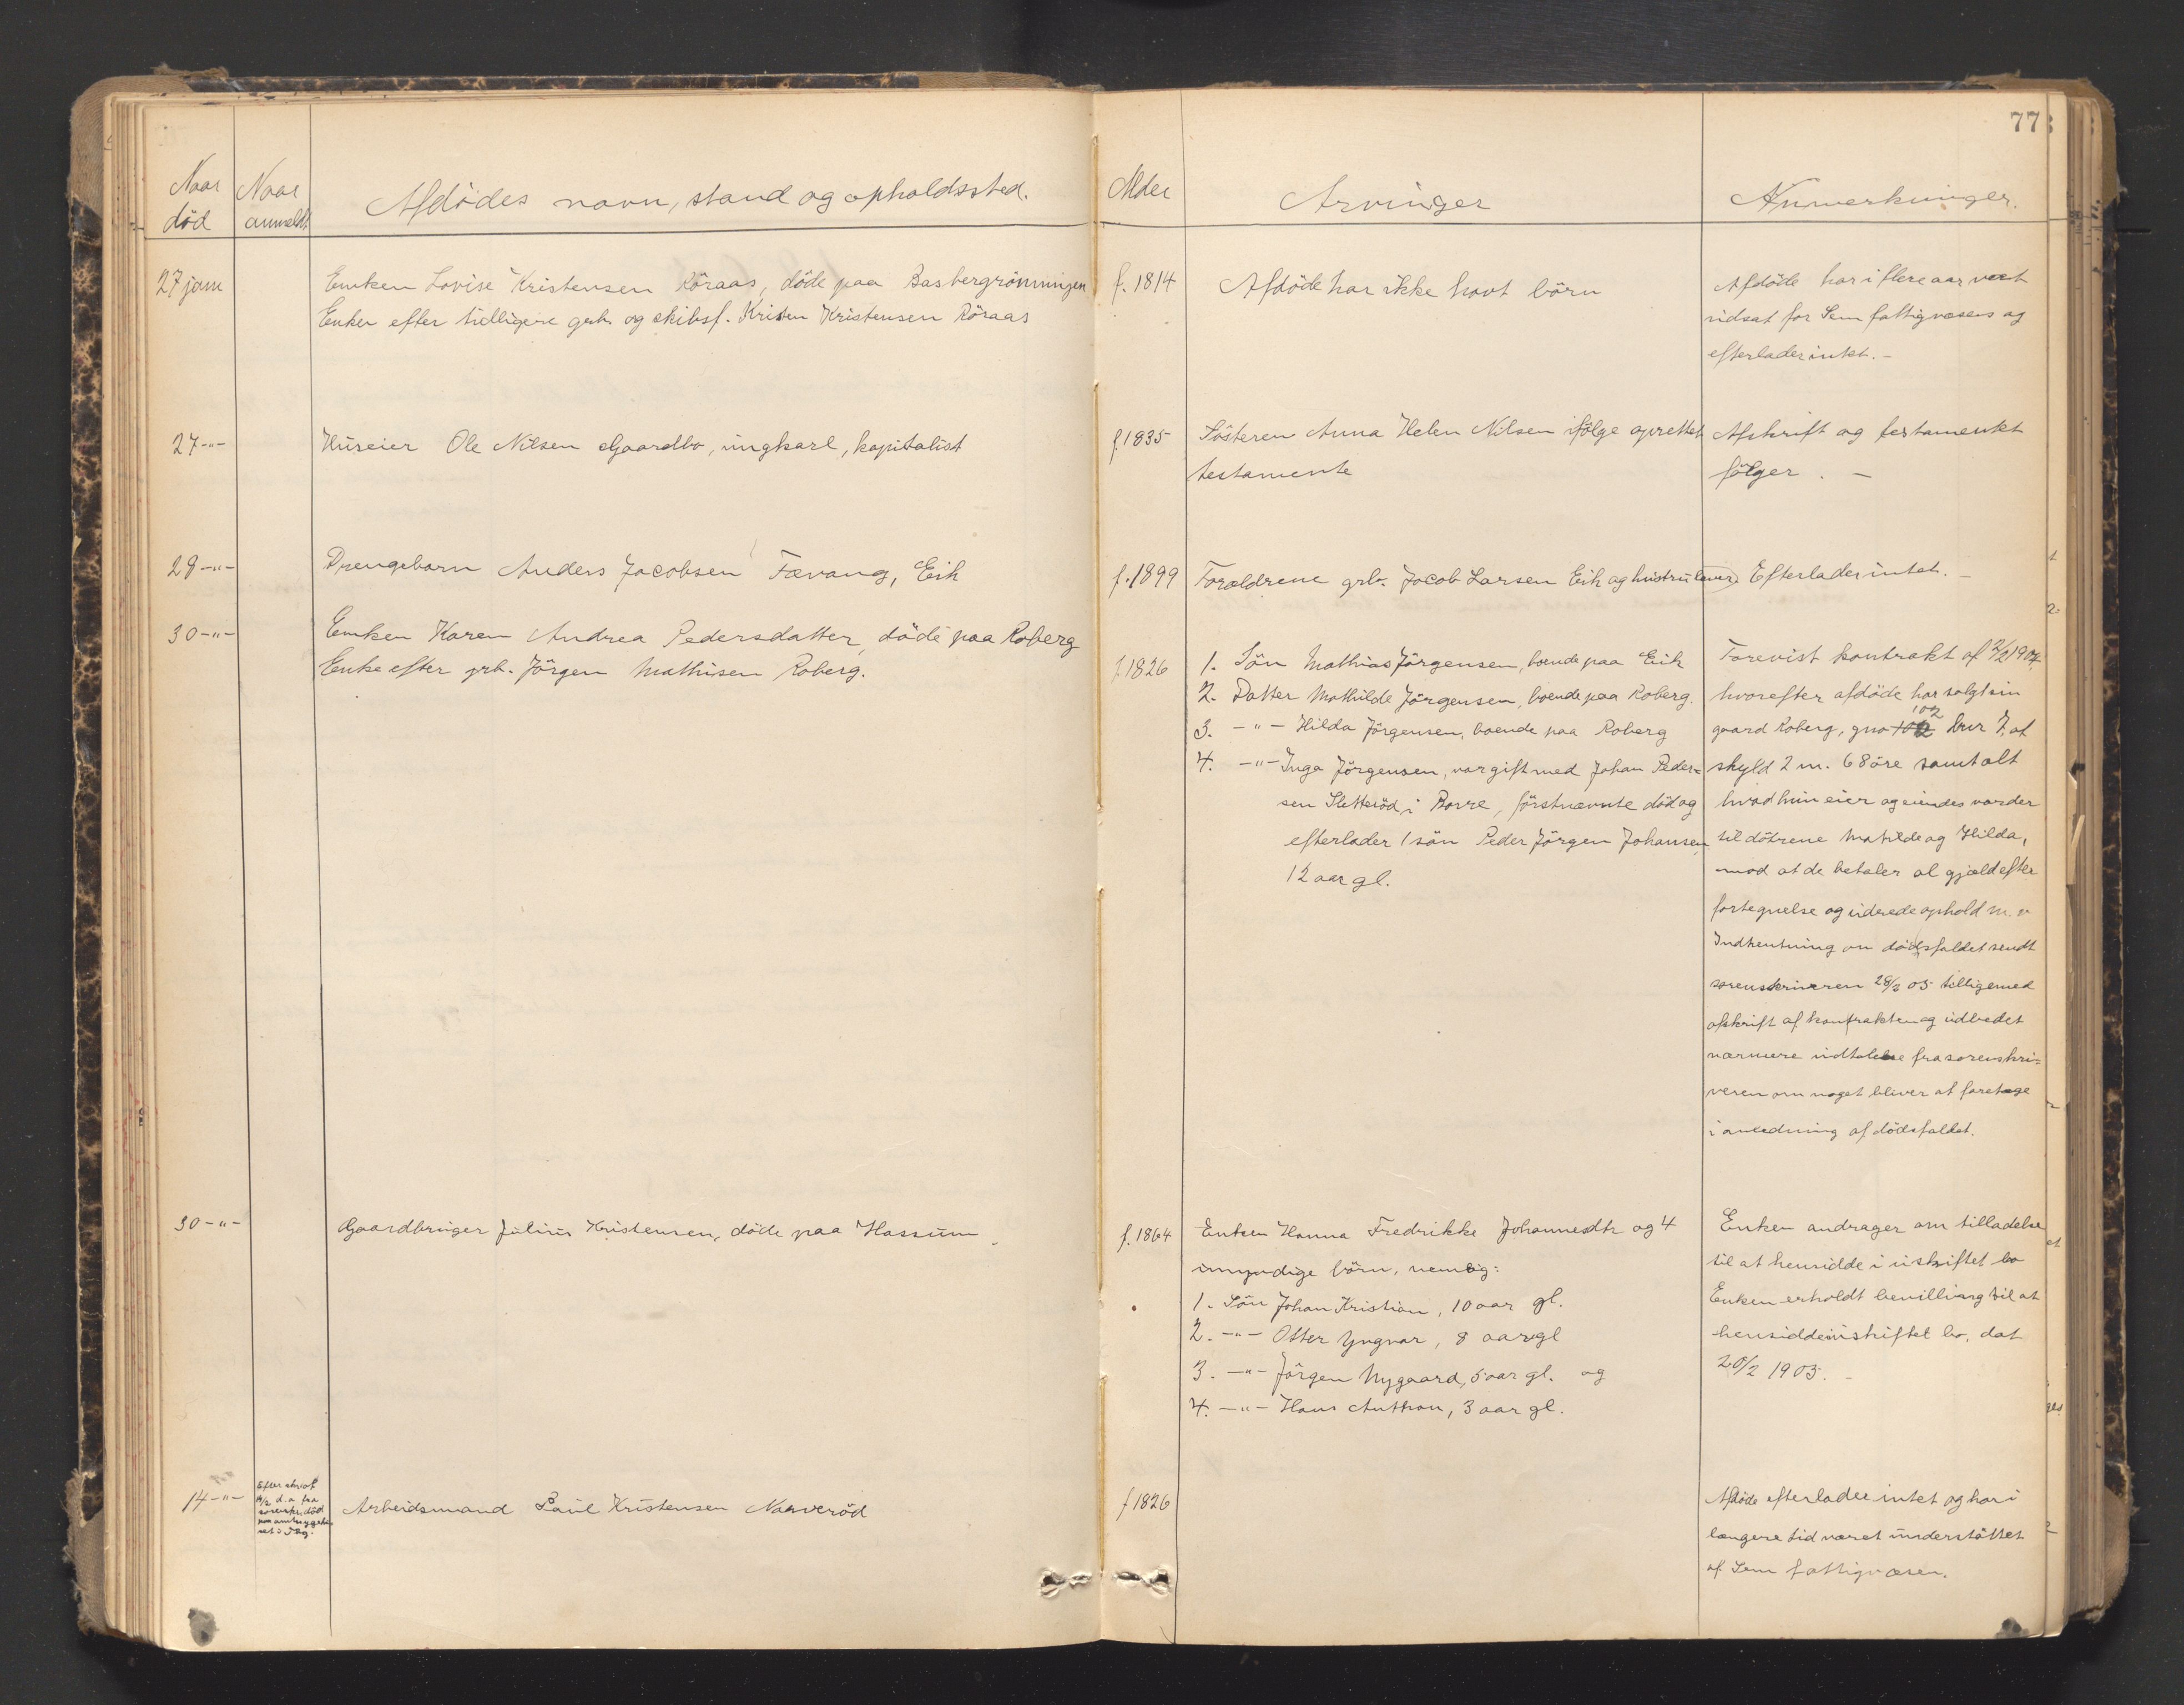 77
Naar død
Naar anmeldt.
Afdödes navn, stand og opholdssted.
Alder
Arvinger
Anmerkninger.
27 jan
Enken Lovise Kristensen Röraas, döde paa Basbergrönningen
Enken efter tidligere grb. og skibsf. Kristen Kristensen Röraas
f. 1814
Afdöde har ikke havt börn
Afdöde har i flere aar vært
uidsat for Sem fattigvæsens og
efterlader intet. -
27 -"-
Huseier Ole Nilsen Gaardbo, ungkarl, kapitalist
f. 1835
Sösteren Anna Helen Nilsen ifölge oprettet
testamente
Afskrift og testamentet
fölger. -
28 -"-
Drengebarn Anders Jacobsen Fævang, Eik
f. 1899
Forældrene grb. Jacob Larsen Eik og hustru lever
Efterlader intet. -
30 -"-
Enken Karen Andrea Pedersdatter, döde paa Roberg
Enke efter grb. Jörgen Mathisen Roberg.
f. 1826
1. Sön Mathias Jörgensen, boende paa Eik
2. Datter Mathilde Jörgensen, boende paa Roberg.
3. -"- Hilda Jörgensen, boende paa Roberg
4. -"- Inga Jörgensen, var gift med Johan Peder=
sen Sletteröd i Borre, förstnævnte död og
efterlader 1 sön Peder Jörgen Johansen,
12 aar gl.
Forevist kontrakt af 2/2 1904,
hvorefter afdöde har solgt sin
gaard Roberg, gno 102 bnr 7, af
skyld 2 m. 68 öre samt alt
hvad hun eier og eiendes vorder
til dötrene Matilde og Hilda,
mod at de betaler al gjæld efter
fortegnelse og uderede ophold m. v
Indhentning om dödsfaldet sendt
sorenskriveren 28/2 05 tilligemed
afskrift af kontrakten og udbedet
nærmere udtalelse fra sorenskri=
veren om noget bliver at foretage
i anledning af dödsfaldet.
30 -"-
Gaardbruger Julius Kristensen, döde paa Hassum.
f. 1864
Enken Hanna Fredrikke Johannesdtr og 4
umyndige börn, nemlig:
1. Sön Johan Kristian, 10 aar gl.
2. -"- Otter Yngvar, 8 aar gl
3. -"- Jörgen Nygaard, 5 aar gl. og
4. -"- Hans Anthon, 3 aar gl.
Enken andrager om tilladelse
til at hensidde i uskiftet bo
Enken erholdt bevilling til at
hensidde i uskiftet bo, dat
20/2 1905. -
14 -"-
Efter skriv
d. a. fra
sorenskr. död
amtssygehu
set i Tbg.
Arbeidsmand Paul Kristensen Narveröd
f 1826
Afdöde efterlader intet og har i
længere tid været understöttet
af Sem fattigvæsen.